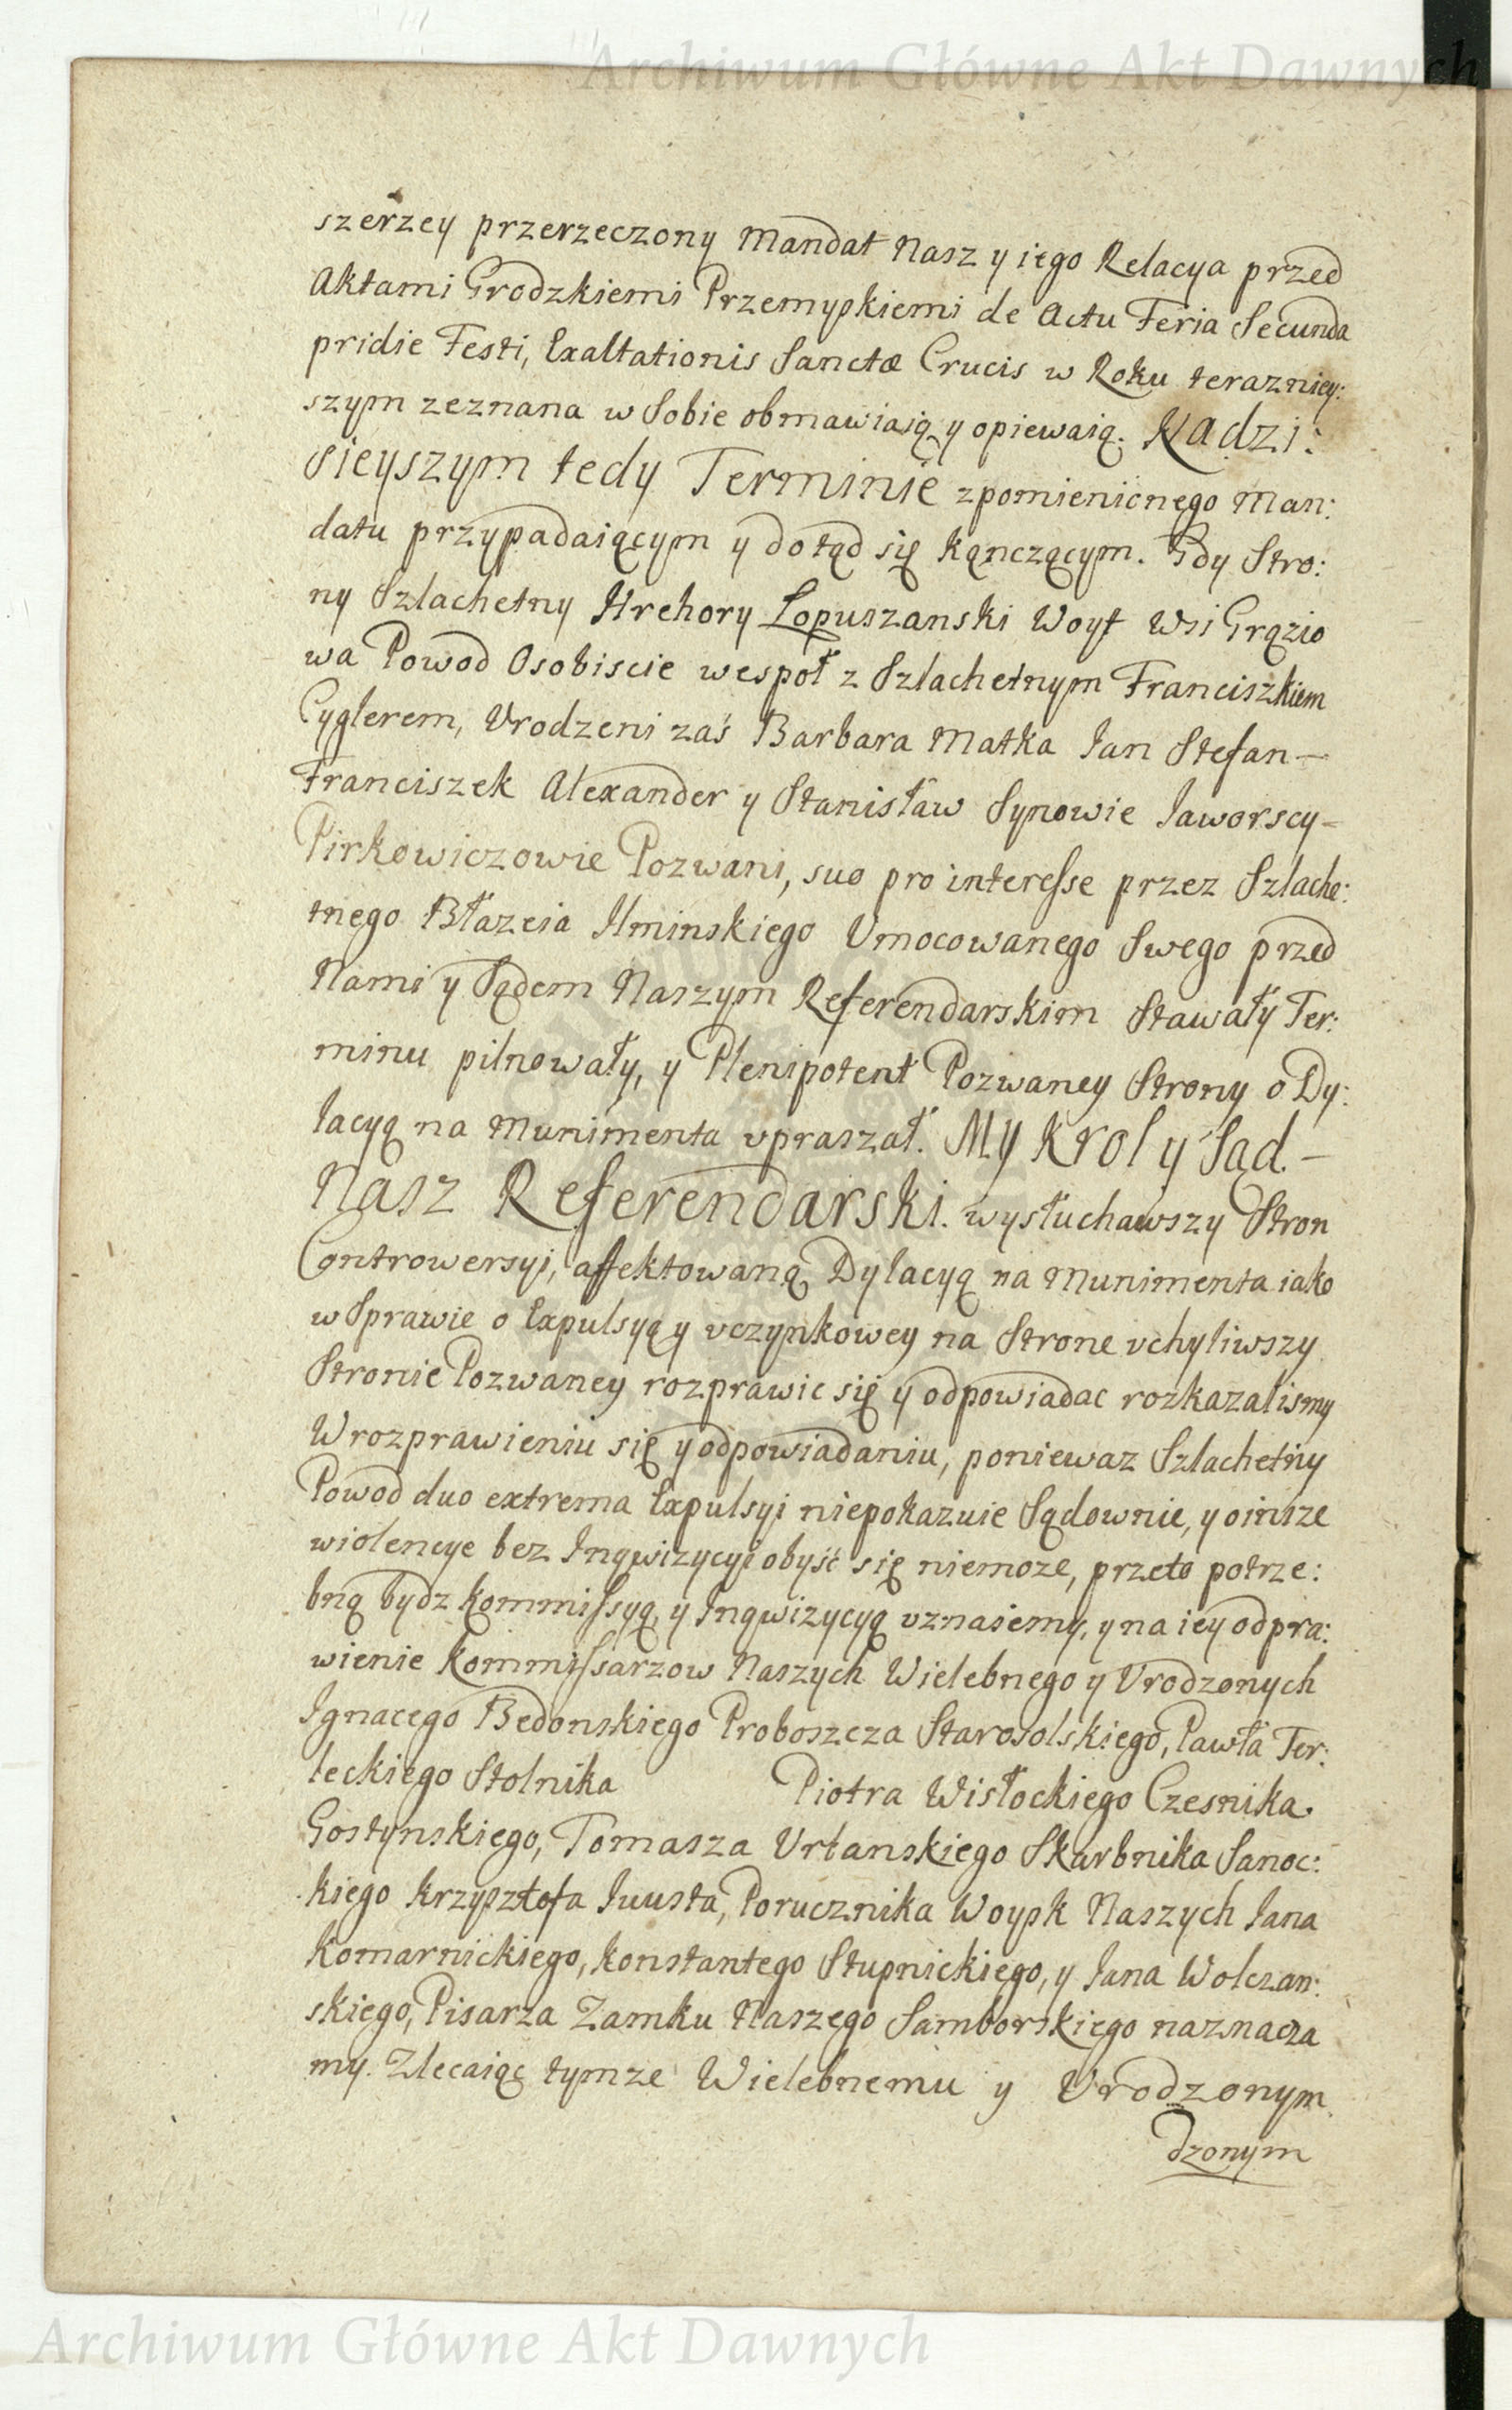 Archiwum Główne Akt Dawnych
szerzey przerzeczony Mandat Nasz y iego Relacya przed
Aktami Grodzkiemi Przemyskiemi de Actu Feria Secunda
pridie Festi, Exaltationis Sanctæ Crucis w Roku terazniey:
szym zeznana w Sobie obmawiaią y opiewaią. Nadzi:
sieyszym tedy Terminie zpomienionego Man:
datu przypadaiącym y dotąd się kączącym. Gdy Stro:
ny Szlachetny Hrehory Łopuszanski Woyt Wsi Grązio
wa Powod Osobiscie wespoł z Szlachetnym Franciszkiem
Cyglerem, Vrodzeni zaś Barbara Matka Ian Stefan —
Franciszek Alexander y Stanisław Synowie Iaworscy =
Pirkowiczowie Pozwani, suo pro interesse przez Szlache:
tnego Błazeia Ilminskiego Vmocowanego Swego przed
Nami y Sądem Naszym Referendarskim Stawały Ter:
minu pilnowały, y Plenipotent Pozwaney Strony o Dy:
lacyą na Munimenta vpraszał. My Krol y Sąd. —
Nasz Referendarski. wysłuchawszy Stron
Controwersyi, affektowaną Dylacyą na Munimenta iako
w Sprawie o Expulsyą y vczynkowey na Strone vchyliwszy
Stronie Pozwaney rozprawic się y odpowiadac rozkazalismy
W rozprawieniu się y odpowiadaniu, poniewaz Szlachetny
Powod duo extrema Expulsyi niepokazuie Sądownie, y oinsze
wiolencye bez Inqwizycyi obyść się niemoze, przeto potrze:
bną bydz Kommissyą, y Inqwizycyą vznaiemy, y na iey odpra:
wienie Kommissarzow Naszych Wielebnego y Vrodzonych
Ignacego Bedonskiego Proboszcza Starosolskiego, Pawła Ter:
leckiego Stolnika Piotra Wisłockiego Czesnika.
Gostynskiego, Tomasza Vrbanskiego Skarbnika Sanoc:
kiego Krzysztofa Iuusta, Porucznika Woysk Naszych Iana
Komarnickiego, Konstantego Stupnickiego, y Iana Wolczan:
skiego, Pisarza Zamku Naszego Samborskiego naznacza
my. Zlecaiąc tymze Wielebnemu y Vrodzonym
dzonym
Archiwum Główne Akt Dawnych